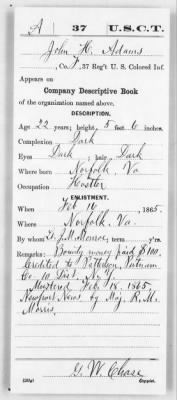 A | 37 | U.S.C.T.
John H. Adams
, Co. F, 37 Reg't U. S. Colored Inf.
Appears on
Company Descriptive Book
of the organization named above.
DESCRIPTION.
Age 22 years; height, 5 feet 6 inches.
Complexion Dark
Eyes Dark ; hair Dark
Where born Norfolk, Va
Occupation
ENLISTMENT.
When Feb 16 , 1865.
Where Norfolk, Va.
By whom J. M. Monroe; term y'rs.
Remarks: Bounty money paid $100.
Credited to Patterson, Putnam
Co. 10 Dist. N.Y.
Mustered Feb. 18, 1865,
Newport News by Maj. R. M.
Morris.
G. W. Chase
Copyist.